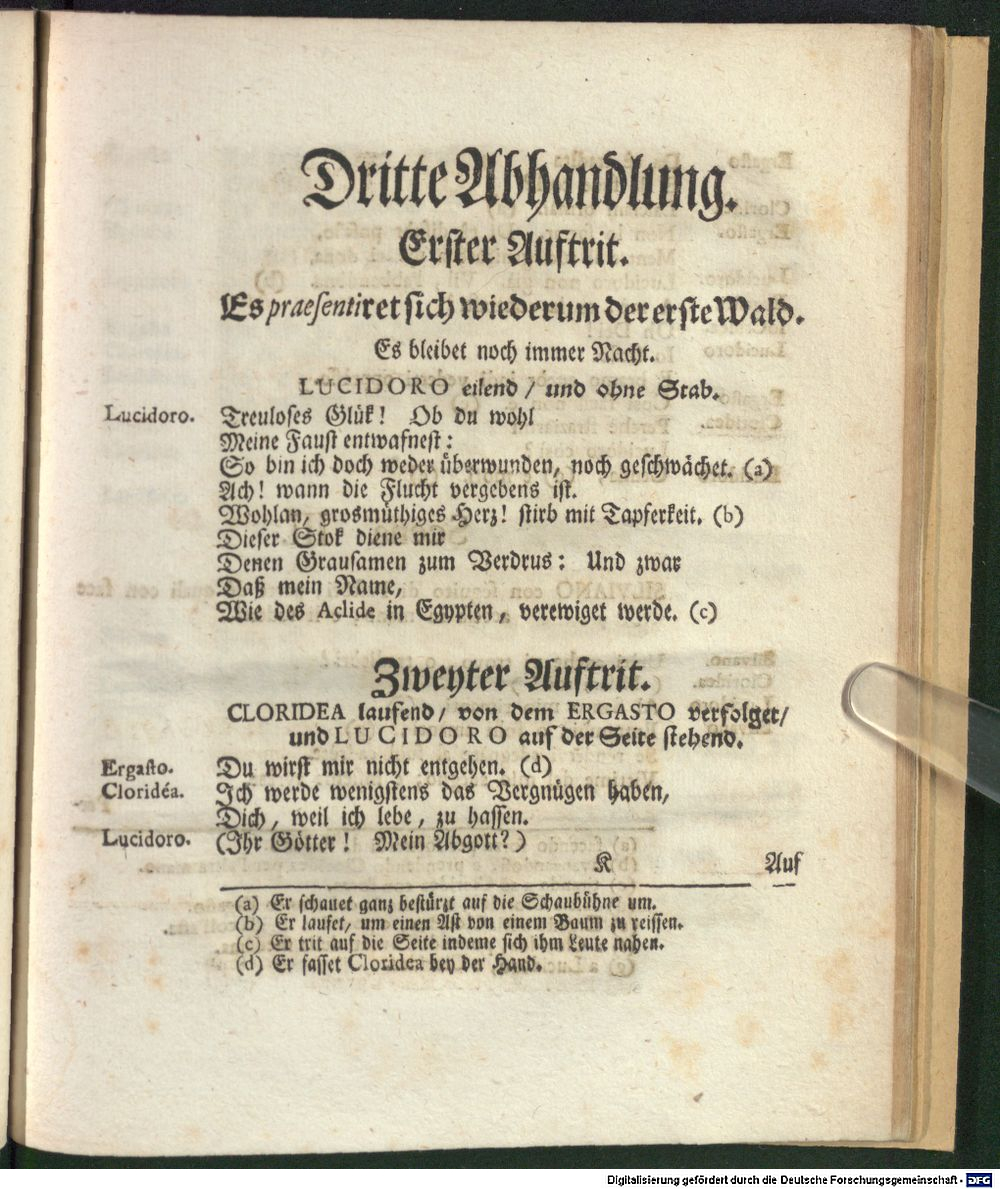 Dritte Abhandlung.
Erster Auftrit.
Es praesentiret sich wiederum der erste Wald.
Es bleibet noch immer Nacht.
LUCIDORO eilend / und ohne Stab.
Lucidoro. Treuloses Glük! Ob du wohl
Meine Faust entwafnest:
So bin ich doch weder überwunden, noch geschwächet. (a)
Ach! wann die Flucht vergebens ist.
Wohlan, grosmüthiges Herz! stirb mit Tapferkeit. (b)
Dieser Stok diene mir
Denen Grausamen zum Verdrus: Und zwar
Daß mein Name,
Wie des Aclide in Egypten, verewiget werde. (c)
Zweyter Auftrit.
CLORIDEA laufend / von dem ERGASTO verfolget /
und LUCIDORO auf der Seite stehend.
Ergasto. Du wirst mir nicht entgehen. (d)
Cloridéa. Ich werde wenigstens das Vergnügen haben,
Dich, weil ich lebe, zu hassen.
Lucidoro. (Ihr Götter! Mein Abgott?)
K Auf
(a) Er schauet ganz bestürzt auf die Schaubühne um.
(b) Er laufet, um einen Ast von einem Baum zu reissen.
(c) Er trit auf die Seite indeme sich ihm Leute nahen.
(d) Er fasset Cloridea bey der Hand.
Digitalisierung gefördert durch die Deutsche Forschungsgemeinschaft - DFG